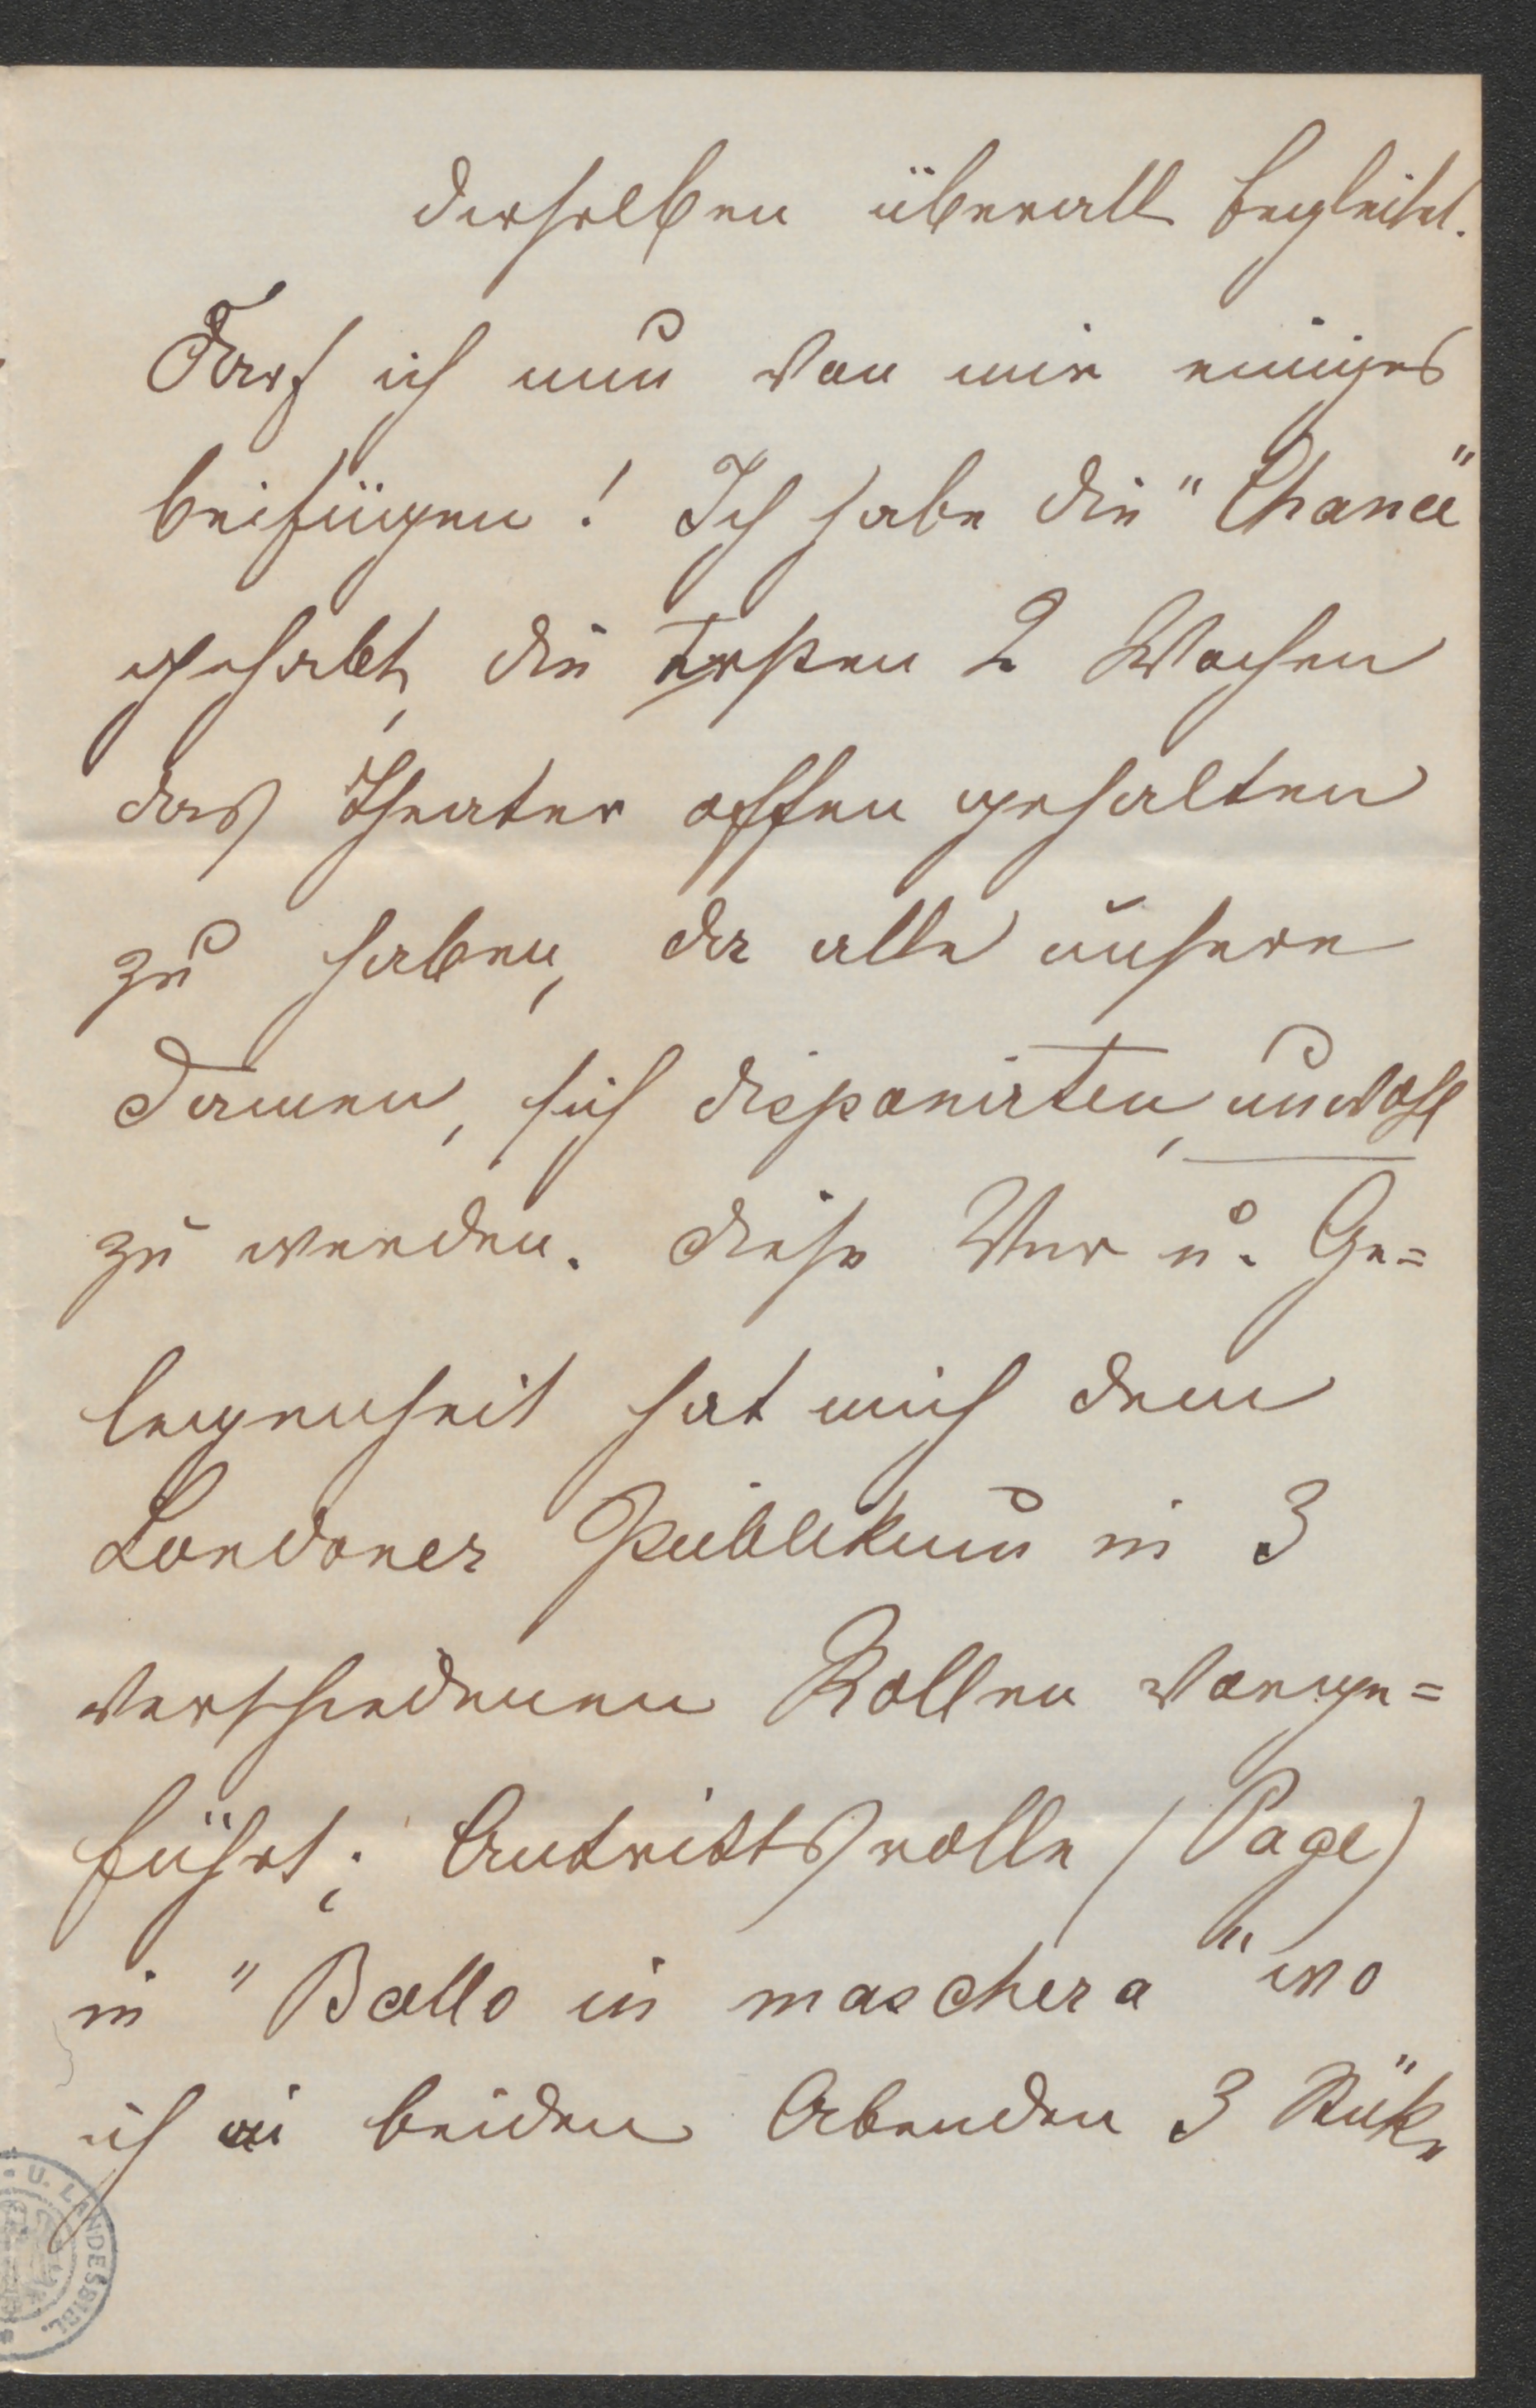 derselben überall begleitet.
Darf ich nun von mir einiges
beifügen! Ich habe die "Chance"
gehabt, die ersten 2 Wochen
das Theater offen gehalten
zu haben, da alle unsere
Damen, sich disponirten, unwohl
zu werden. Diese Ver u. Ge=
legenheit hat mich dem
Londoner Publikum in 3
verschiedenen Rollen vorge=
führt; Antrittsrolle (Page)
in "Ballo in maschera" wo
ich in beiden Abenden 3 Stüke
U. LANDESBIBL.